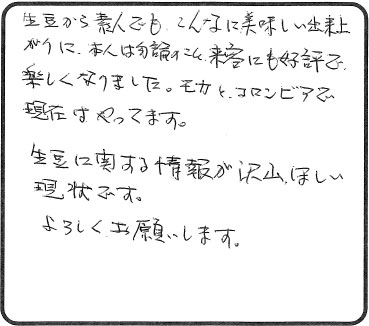 生豆から素人でも、こんなに美味しい出来上
がりに、本人は勿論のこと、来客にも好評で、
楽しくなりました。モカと、コロンビアで
現在はやってます。
生豆に関する情報が沢山、ほしい
現状です。
よろしくお願いします。